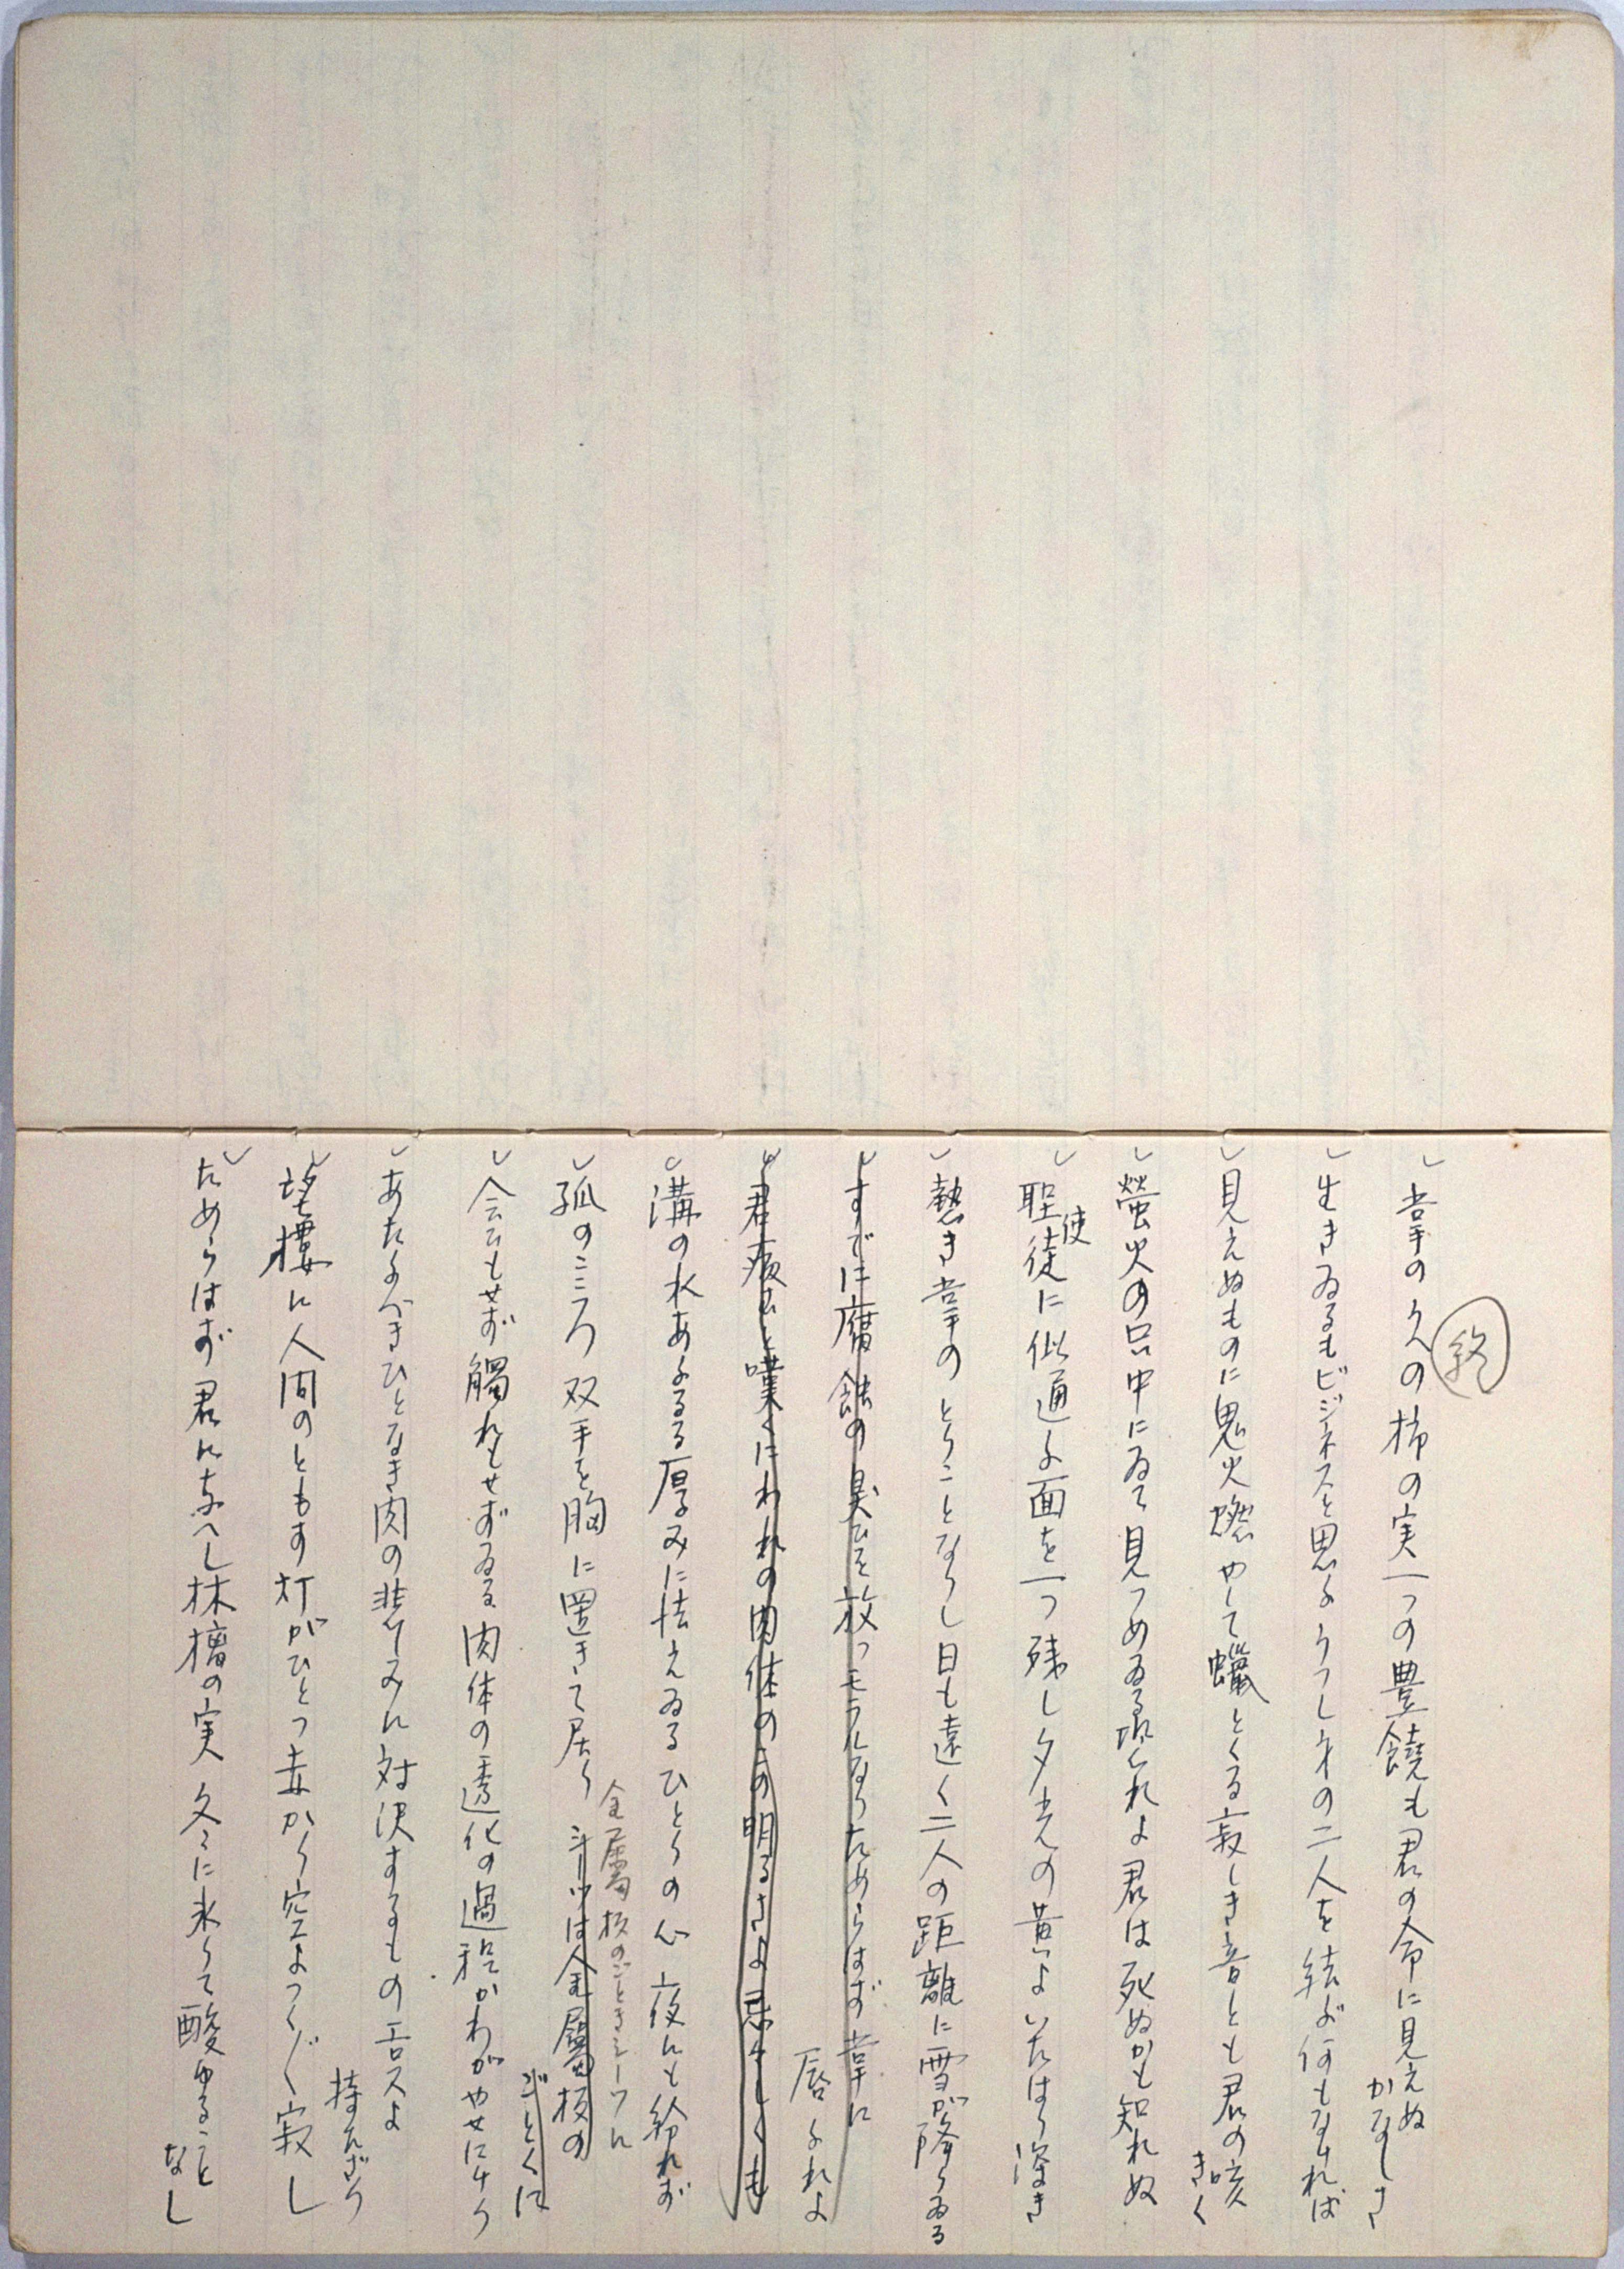 終
掌のりへの柿の実一つの豊饒も君の命に見えぬ
かなしさ
生きゐるもビジネスと思ふうつし身の二人を結ぶ何もなければ
見えぬものに鬼火燃やして蠟とくる寂しき音とも君の咳
きく
螢火の只中にゐて見つめゐる恐れよ君は死ぬかも知れぬ
使
聖徒に似通ふ面を一つ残し夕光の黄よいたはり深き
熱き掌のとりことなりし日も遠く二人の距離に雪が降りゐる
すでに腐蝕の臭ひを放つモラルなりためらはず掌に
唇ふれよ
君疲れと嘆くにわれの肉体のこの明るさよ
溝の水あふるる厚みに怯えゐるひとりの心夜にも紛れず
孤のこころ双手を胸に置きて居りシーツは金属板の
ごとくに
金属板のごときシーツに
会ひもせず觸れもせずゐる肉体の透化の過程かわがやせにけり
あたふべきひとなき肉の悲しみに対決するもののエロスよ
持たざり
望樓に人間のともす灯がひとつ赤かり空よつくづく寂し
ためらはず君に与へし林檎の実冬に氷りて酸ゆること
なし